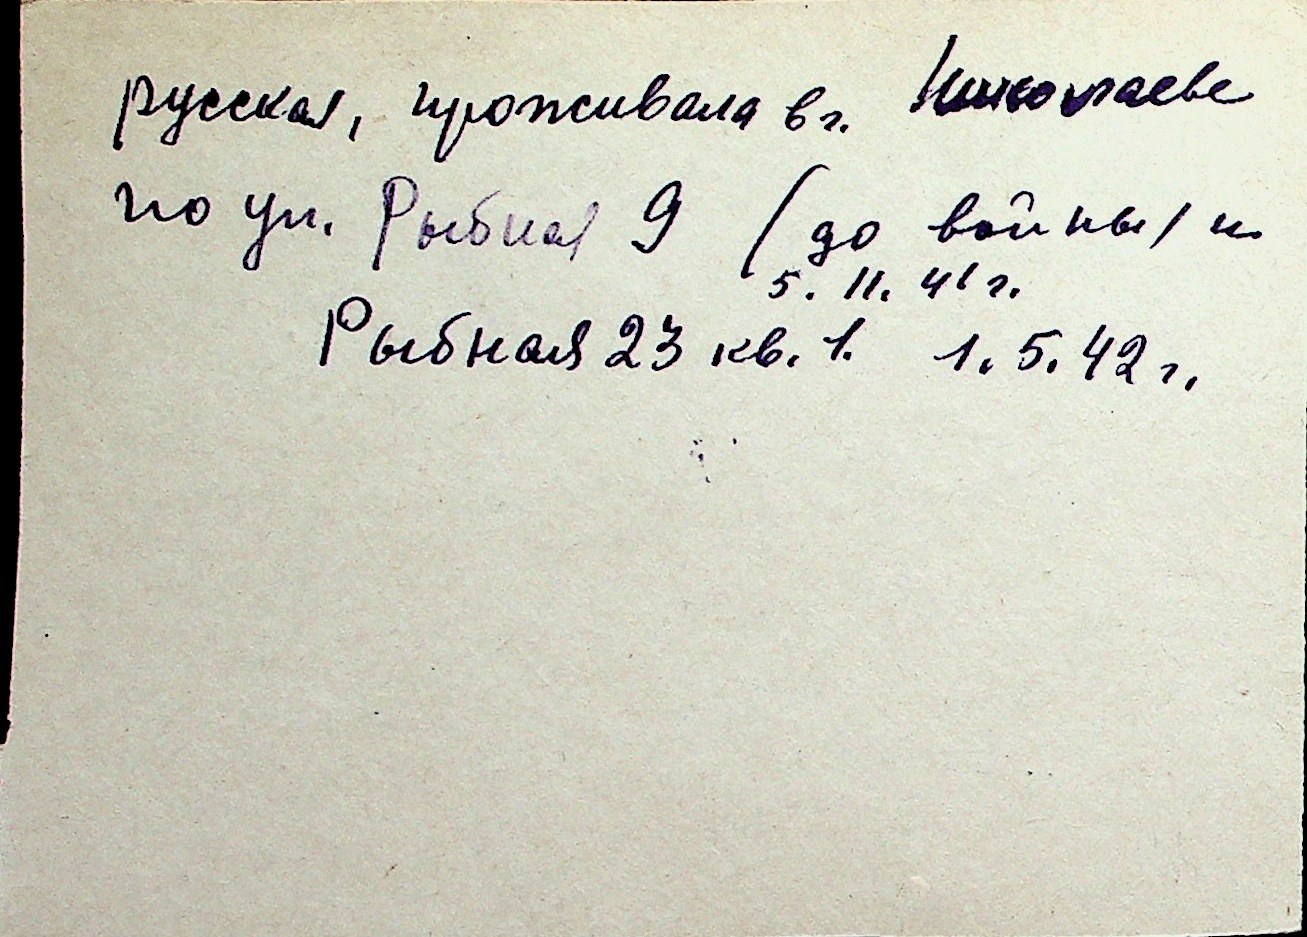 русская, проживала в г. Николаеве
по ул. Рыбная 9 (до войны) и
5. 11. 41 г.
Рыбная 23 кв. 1. 1. 5. 42 г.